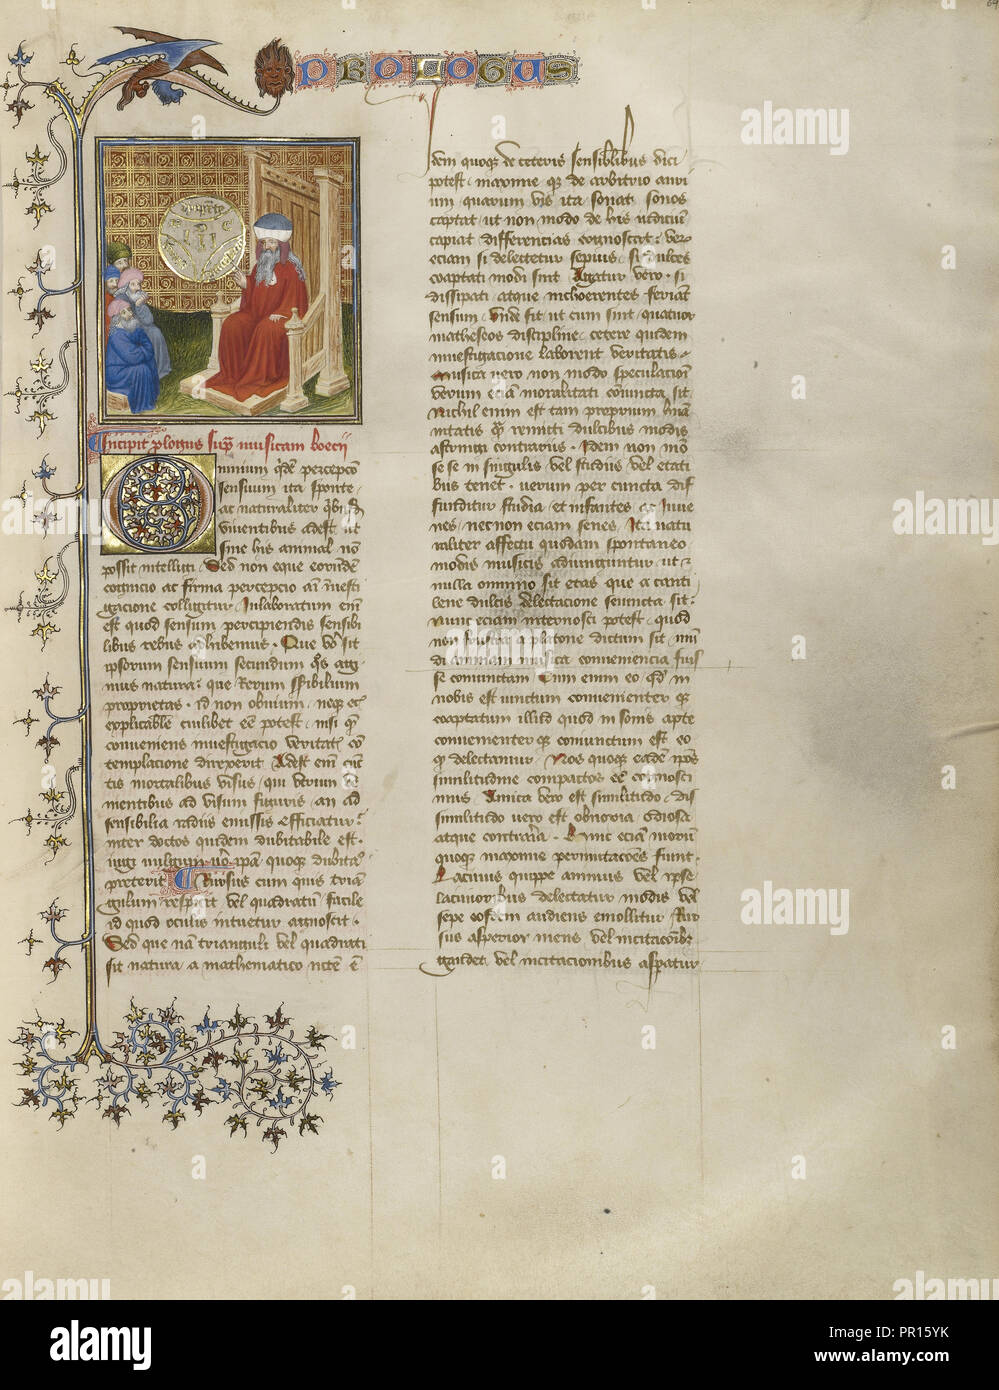 PROLOGUS
Incipit plogus sup musicam boecii
Omnium qdem percepcio
sensuum ita sponte
ac naturaliter qbusd
viventibus adest ut
sine his animal no
possit intelligi. Sed non eque eorundem
cognicio ac firma percepcio ai investi
gacione colligitur. Inlaboratum eni
est quod sensum percipiendis sensibi
libus rebus adhibemus. Que vo sit
ipsorum sensuum secundum qos agi
mus natura: que Rerum ssibilium
proprietas. id non obvium. neqz et
explicabile cuilibet ee potest. nisi que
conveniens investigacio veritatis con
templacione direxerit. Adest eni cuc
tis mortalibus visus. qui verum ve
nientibus ad visum figuris. an ad
sensibilia radiis emissis efficiatur:
inter doctos quidem dubitabile est.
vulgum vo ipsa quoqz dubitacio
preterit. Rursus cum quis trian
gulum respicit vel quadratum facile
id quod oculis intuetur agnoscit.
Sed que nam trianguli vel quadrati
sit natura a mathematico necesse e
Idem quoqz de ceteris sensibilibus dici
potest. maxime qz de arbitrio auri
um quarum vis ita sonat sonos
captat ut non modo de his iudicium
capiat differencias cognoscat: ver
eciam si delectetur sepius. si dulces
coaptati modi sint. Agatur vero. si
dissipati atque incohoerentes feriant
sensum. Unde fit ut cum sint quatuor
matheseos discipline. cetere quidem
investigacione laborent veritatis.
Musica vero non modo speculacioni
verum eciam moralitati coniuncta sit.
Nichil enim est tam proprium huma
nitatis qz remitti dulcibus modis
astringi contrariis. Idem non mo
se se in singulis vel studiis vel etati
bus tenet. verum per cuncta dif
funditur studia. et infantes ac iuve
nes. nec non eciam senes. Ita natu
raliter affectu quodam spontaneo
modis musicis adiunguntur. ut
nulla omnino sit etas que a canti
lene dulcis delectacione seiuncta sit.
Nunc eciam internosci potest. quod
non frustra a platone dictum sit mun
di animam musica conveniencia fuis
se coniunctam. Cum enim eo quod in
nobis est iunctum convenienter qz
coaptatum illud quod in sonis apte
convenienter qz coniunctum est eo
qz delectamur. Nos quoqz eadem ipsos
similitudine compactos ee cognosci
mus. Amica vero est similitudo. dis
similitudo vero est obnoxia odiosa
atque contraria. Hinc eciam morum
quoqz maxime permutaciones fiunt.
Lacivus quippe animus vel ipse
lacivioribus delectatur modis vel
sepe eosdem audiens emollitur. Rur
sus asperior mens vel incitacioribz
gaudet. vel incitacionibus asperatur
alamy
alamy
PR15YK
www.alamy.com